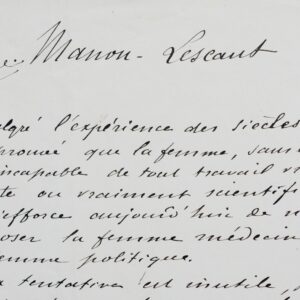 Manon-Lescaut
lgré l'expérience des siècles
prouvé que la femme, sans
incapable de tout travail vr
te ou vraiment scientifi
s'efforce aujourd'hui de n
oser la femme médecin
emme politique.
tentative est inutile,